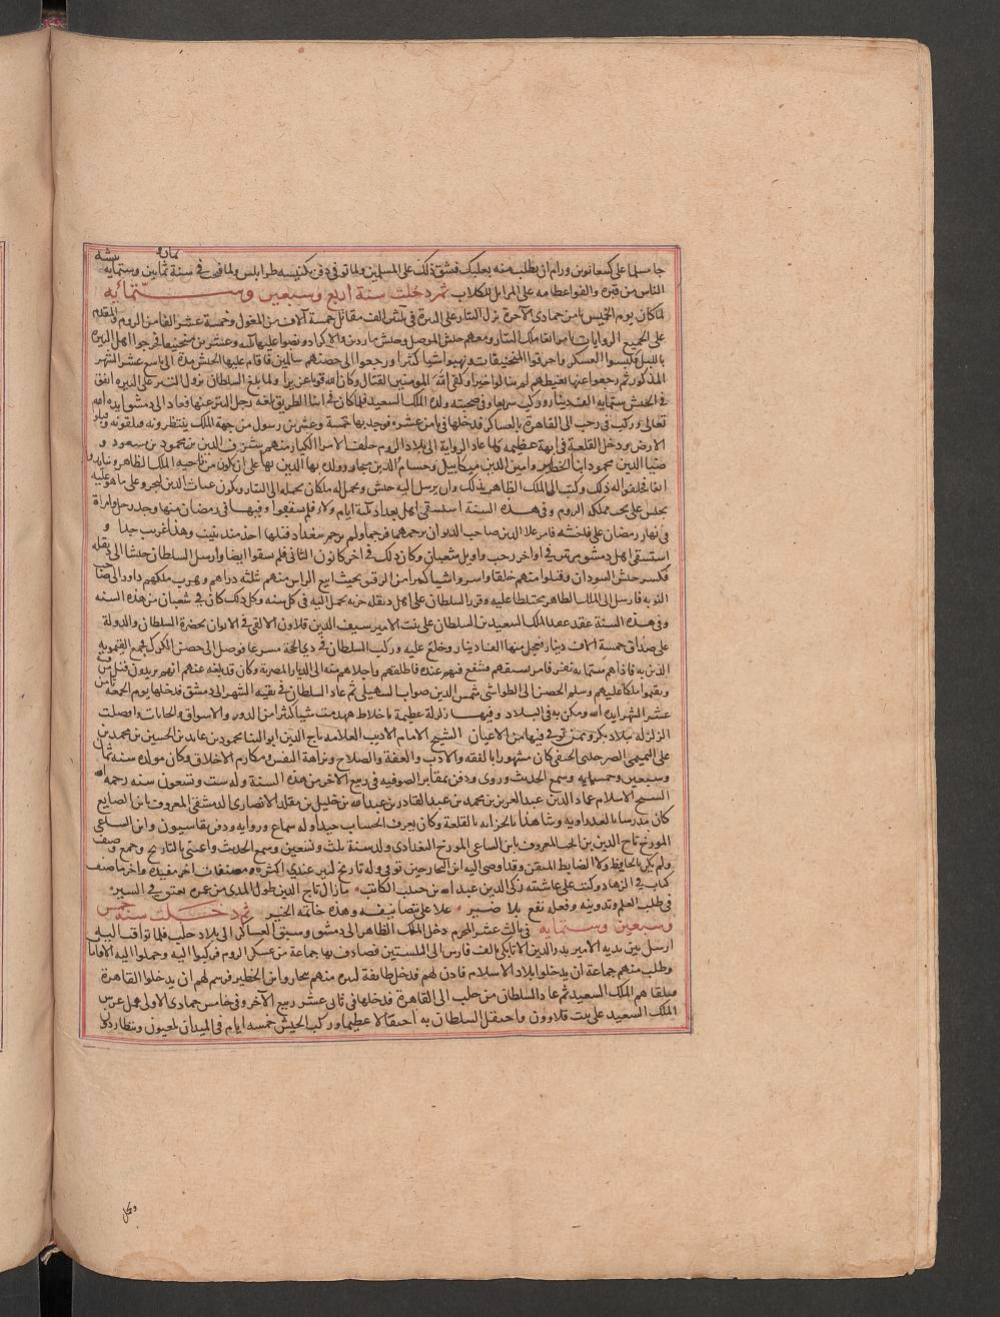 جا مسلما على كسعانوين ورام ان يطلب منه بعلبك فشق ذلك على المسلمين ولما توفي دفن بكنيسه طرابلس ولما فتحت في سنة ثمانين وستمايه
الناس من قبره والقوا عظامه على المزابل للكلاب ثم دخلت سنة اربع وسبعين وستمائيه
لما كان يوم الخميس ثامن جمادى الآخرة نزل التتار على البيرة في ثلثين الف مقاتل خمسة آلاف من المغول وخمسة عشر الفا من الروم والمقدم
على الجميع البرواناه بامر ابغا ملك التتار ومعهم جيش الموصل وجيش ماردين والاكراد ونصبوا عليها ثلثة وعشرين منجنيقا فخرجوا اهل البيرة
بالليل فكبسوا العسكر واحرقوا المنجنيقات ونهبوا شيا كثيرا ورجعوا الى حصنهم سالمين فاقام عليها الجيش مدة الى تاسع عشر الشهر
المذكور ثم رجعوا عنها بغيظهم لم ينالوا خيرا وكفى الله المؤمنين القتال وكان الله قويا عزيزا ولما بلغ السلطان نزول التتر على البيره انفق
في الجيش ستمايه الف دينار وركب سريعا وفي صحبته ولده الملك السعيد فلما كان في اثنا الطريق بلغه رحيل التتر عنها فعاد الى دمشق ايده الله
تعالى وركب في رجب الى القاهرة بالعساكر فدخلها في ثامن عشره فوجد بها خمسة وعشرين رسول من جهة الملك ينتظرونه فتلقوته وقبلوا
الارض ودخل القلعة في ابهة عظيمه ولما عاد البرواناه الى بلاد الروم حلف الامرا الكبار منهم شرف الدين بن محمود بن سعود و
ضيا الدين محمود ابنا الخطير وامين الدين ميكاييل وحسام الدين بيجار وولده بها الدين بها على ان يكون من ناحيه الملك الظاهر وينابذو
ابغا فحلفوا له ذلك وكتب الى الملك الظاهر بذلك وان يرسل اليه جيش ويحمل له ما كان يحمله الى التتار ويكون غياث الدين كنجرو على ما هو عليه
يجلس على تخت مملكه الروم وفي هذه السنة استسقى اهل بغداد ثلثة ايام ولاء فلم يسقوا وفيها في رمضان منها وجد رجل وامراة
في نهار رمضان على فاحشه فامر علا الدين صاحب الديوان برجمهما فرجما ولم يرجم ببغداد قبلها احد منذ بنيت وهذا غريب جدا و
استسقى اهل دمشق مرتين في اواخر رجب واوايل شعبان وكان ذلك في اخر كانون الثاني فلم يسقوا ايضا وارسل السلطان جيشا الى دنقله
فكسر جيش السودان وقتلوا منهم خلقا واسروا شيا كثيرا من الرقيق بحيث ابيع الراس منهم ثلثه دراهم وهرب ملكهم داود الى صاحب
النوبه فارسل الى الملك الظاهر محتاطا عليه وقرر السلطان على اهل دنقله جزيه تحمل اليه في كل سنه وكل ذلك كان في شعبان من هذه السنه
وفي هذه السنة عقد عقد الملك السعيد بن السلطان على بنت الامير سيف الدين قلاون الالفي في الايوان بحضرة السلطان والدولة
على صداق خمسة الاف دينار فيعجل منها الفا دينار وخلع عليه وركب السلطان في ذي الحجة مسرعا فوصل الى حصن الكرك فجمع القيموريه
الذين به فاذا هم ستمايه نفر فامر بسقهم فشفع فيهم عنده فاطلقهم واجلاهم منه الى الديار المصرية وكان قد بلغه عنهم انهم يريدون قتل من فيه
ويقيموا ملكا عليهم وسلم الحصن الى الطواشي شمس الدين صواب السهيلي ثم عاد السلطان في بقيه الشهر الى دمشق فدخلها يوم الجمعه ثامن
عشر الشهر ايده الله ومكن به في البلاد وفيها زلزلة عظيمة باخلاط فهدمت شيا كثيرا من الدور والاسواق والخانات واوصلت
الزلزله ببلاد بكر وممن توفي فيها من الاعيان الشيخ الامام الاديب العلامه تاج الدين ابو الثنا محمود بن عابد بن الحسين بن محمد بن
علي التميمي الصرخدي الحنفي كان مشهورا بالفقه والادب والعفة والصلاح ونزاهة النفس ومكارم الاخلاق وكان مولده سنه ثمان
وسبعين وخمسمايه وسمع الحديث وروى ودفن بمقابر الصوفيه في ربيع الاخر من هذه السنة وله ست وتسعون سنه رحمه الله
الشيخ الاسلام عماد الدين عبد العزيز بن محمد بن عبد القادر بن عبد الله بن خليل بن مقلد الانصاري الدمشقي المعروف بابن الصايغ
كان مدرسا بالعذراويه وشاهدا بالخزانه بالقلعة وكان يعرف الحساب جيدا وله سماع وروايه ودفن بقاسيون وابن الساعي
المؤرخ تاج الدين بن المعروف بابن الساعي المؤرخ البغدادي ولد سنة ثلث وتسعين وسمع الحديث واعتنى بالتاريخ وجمع وصنف
ولم يكن بالحافظ ولا الضابط المتقن وقد اوصى اليه ابن النجار حين توفي وله تاريخ كبير عندي اكثره ومصنفات اخر مفيده واخر ما صنف
كتاب في الزهاد وكتب على حاشيته زكي الدين عبد الله بن حبيب الكاتب ما زال تاج الدين طول المدى من عمره يعتق في السير
في طلب العلم وتدوينه وفعله نفع بلا ضير علا علي تصانيفه وهذه خاتمه الخير ثم دخلت سنه خمس
وسبعين وستمايه في ثالث عشر المحرم دخل الملك الظاهر الى دمشق وسبق العساكر الى بلاد حلب فلما توافت اليه
ارسل بين يديه الامير بدر الدين الاتابكي بالف فارس الى البلستين فصادف بها جماعة من عسكر الروم فركبوا اليه وحملوا اليه الاقامات
وطلب منهم جماعة ان يدخلوا بلاد الاسلام فاذن لهم فدخل طايفة كبيره منهم بيجار وابن الخطير فرسم لهم ان يدخلوا القاهرة
فتلقاهم الملك السعيد ثم عاد السلطان من حلب الى القاهرة فدخلها في ثاني عشر ربيع الآخر وفي خامس جمادى الاولى عمل عرس
الملك السعيد على بنت قلاوون واحتفل السلطان به احتفالا عظيما وركب الجيش خمسه ايام في الميدان يلعبون ويتطاردون